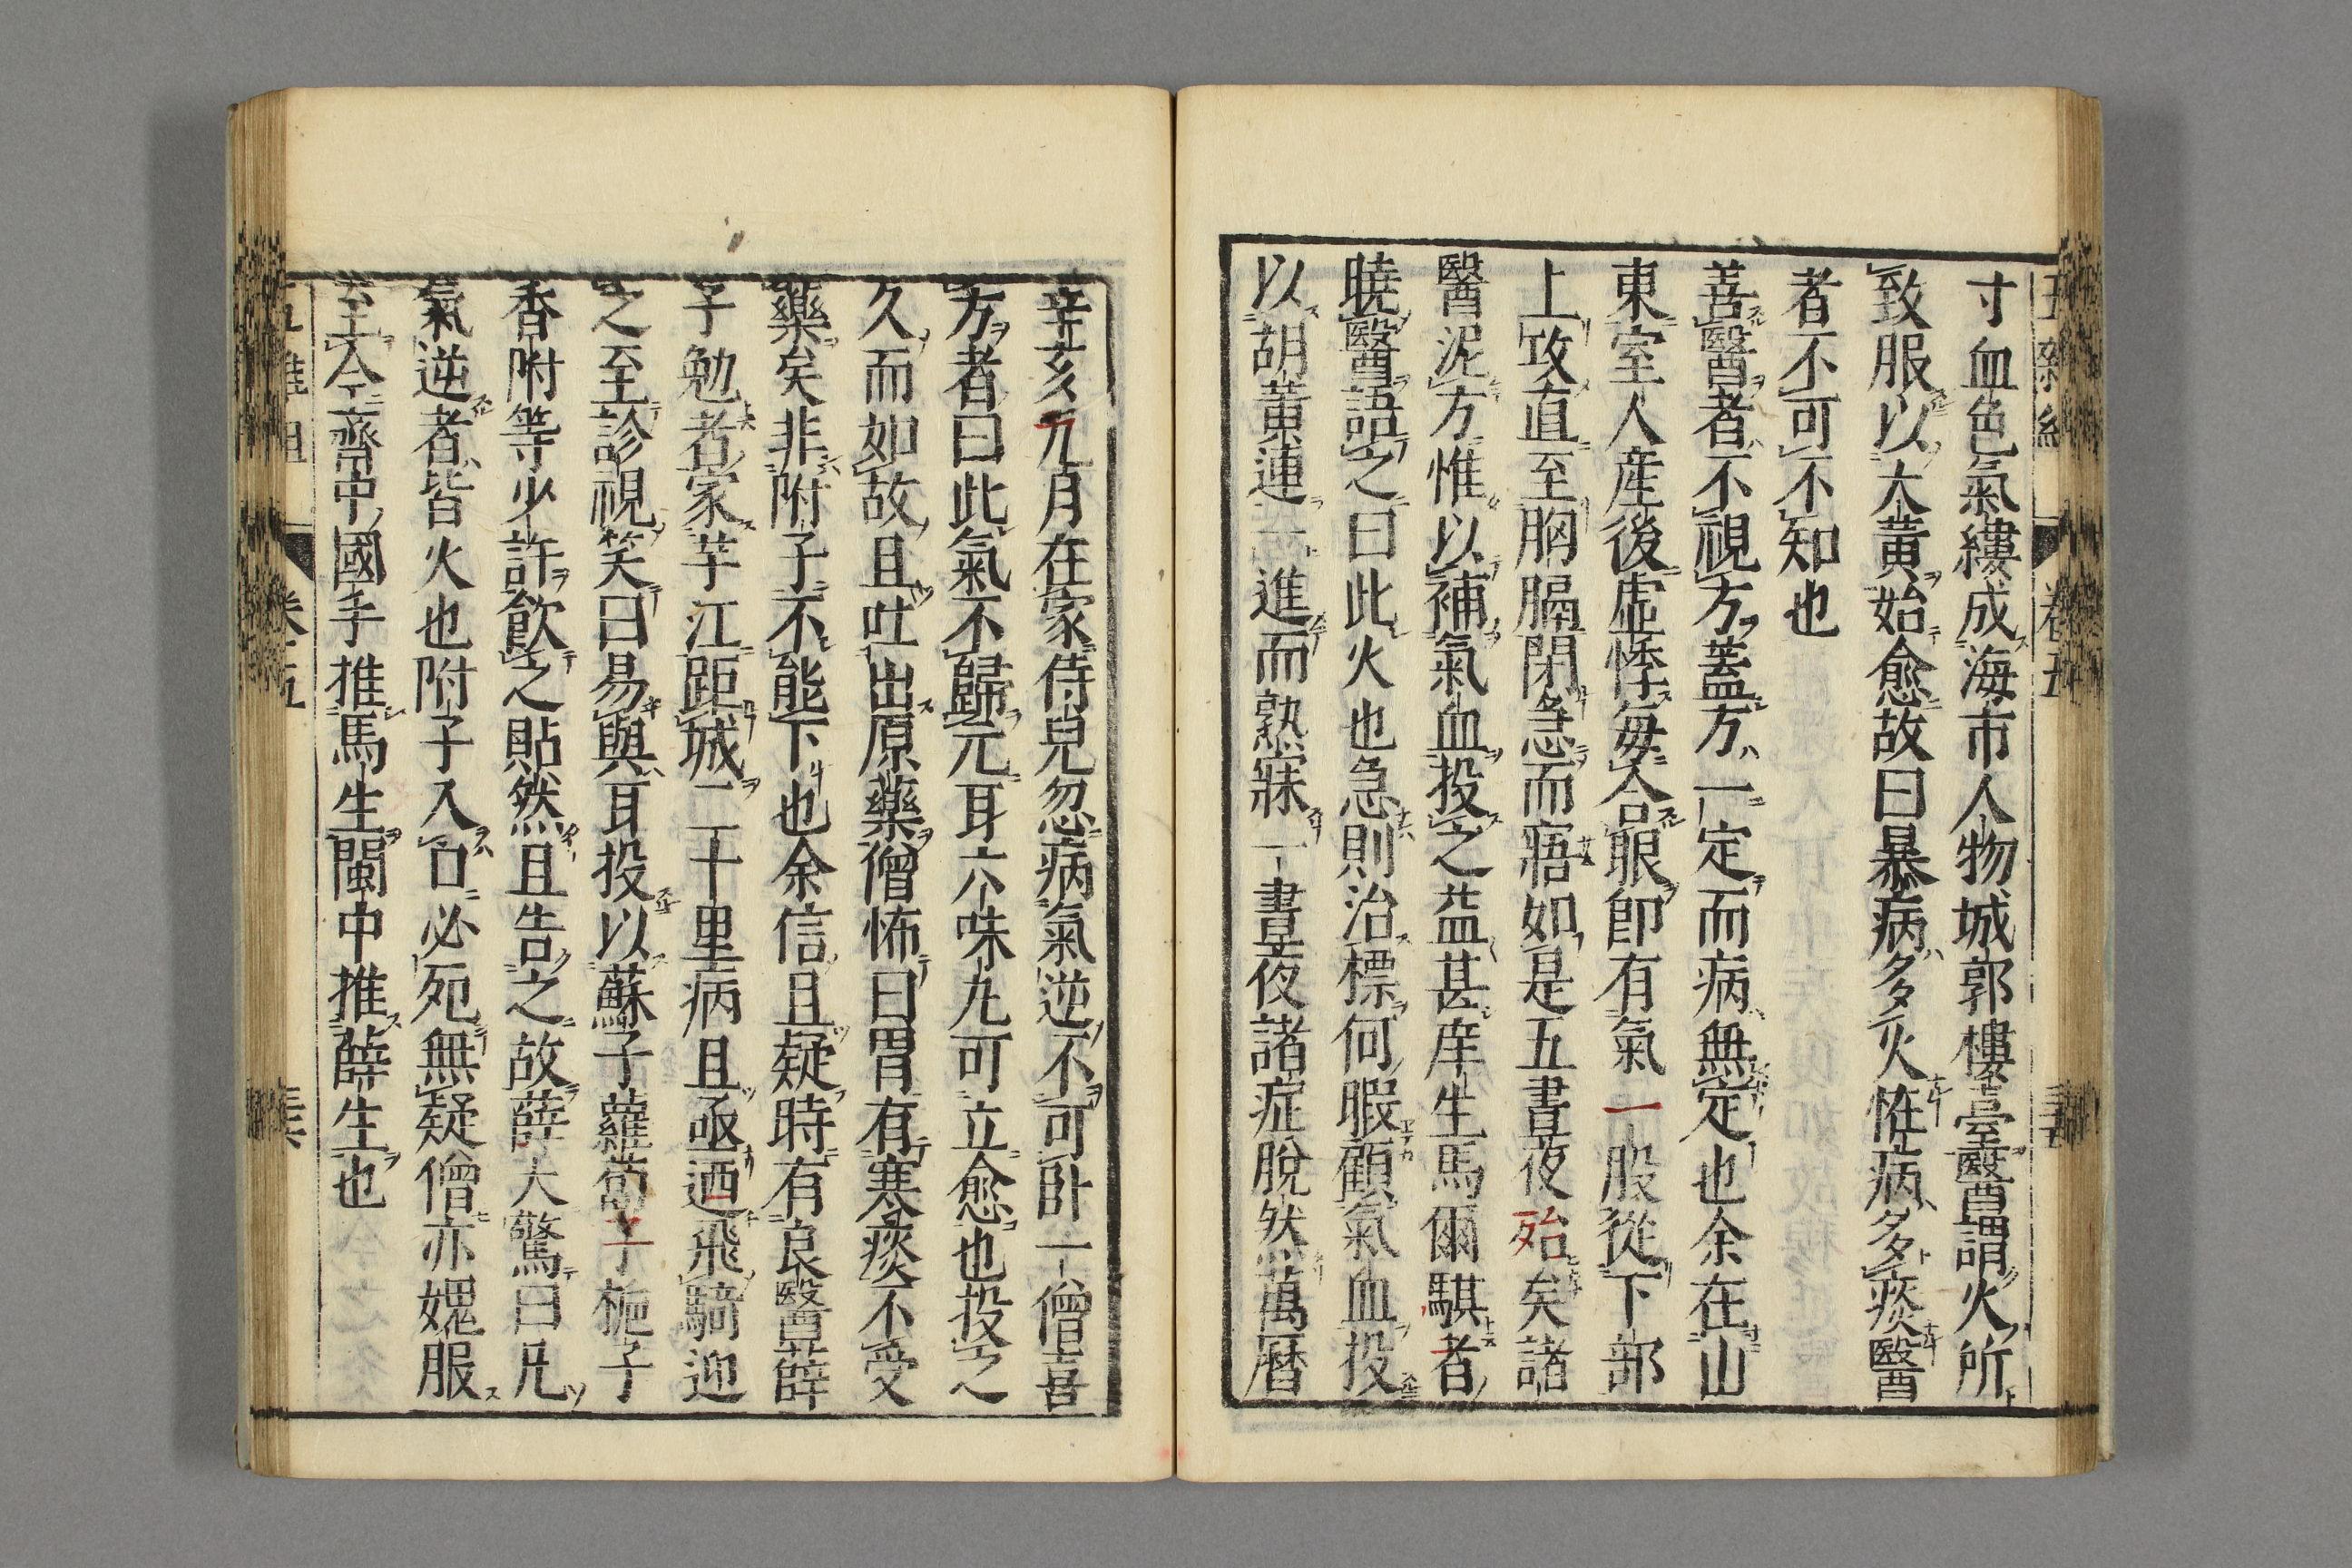 寸血色氣縷成海市人物城郭樓臺醫謂火所
致服以大黃始愈故曰暴病多火恠病多痰醫
者不可不知也
善醫者不視方蓋方一定而病無定也余在山
東室人產後虛悸每合眼卽有氣一股從下部
上攻直至胸膈閉急而寤如是五晝夜殆矣諸
醫泥方惟以補氣血投之益甚庠生馬爾騏者
曉醫語之曰此火也急則治標何暇顧氣血投
以胡黃連一進而熟寐一晝夜諸症脫然萬曆
辛亥九月在家侍兒忽病氣逆不可卧一僧喜
方者曰此氣不歸元耳六味丸可立愈也投之
久而如故且吐出原藥僧怖曰胃有寒痰不受
藥矣非附子不能下也余信且疑時有良醫薛
子勉者家芋江距城二十里病且亟迺飛騎迎
之至診視笑曰易與耳投以蘇子蘿蔔子梔子
香附等少許飮之貼然且告之故薛大驚曰凡
氣逆者皆火也附子入口必死無疑僧亦媿服
至今齊中國手推馬生閩中推薛生也
卷五